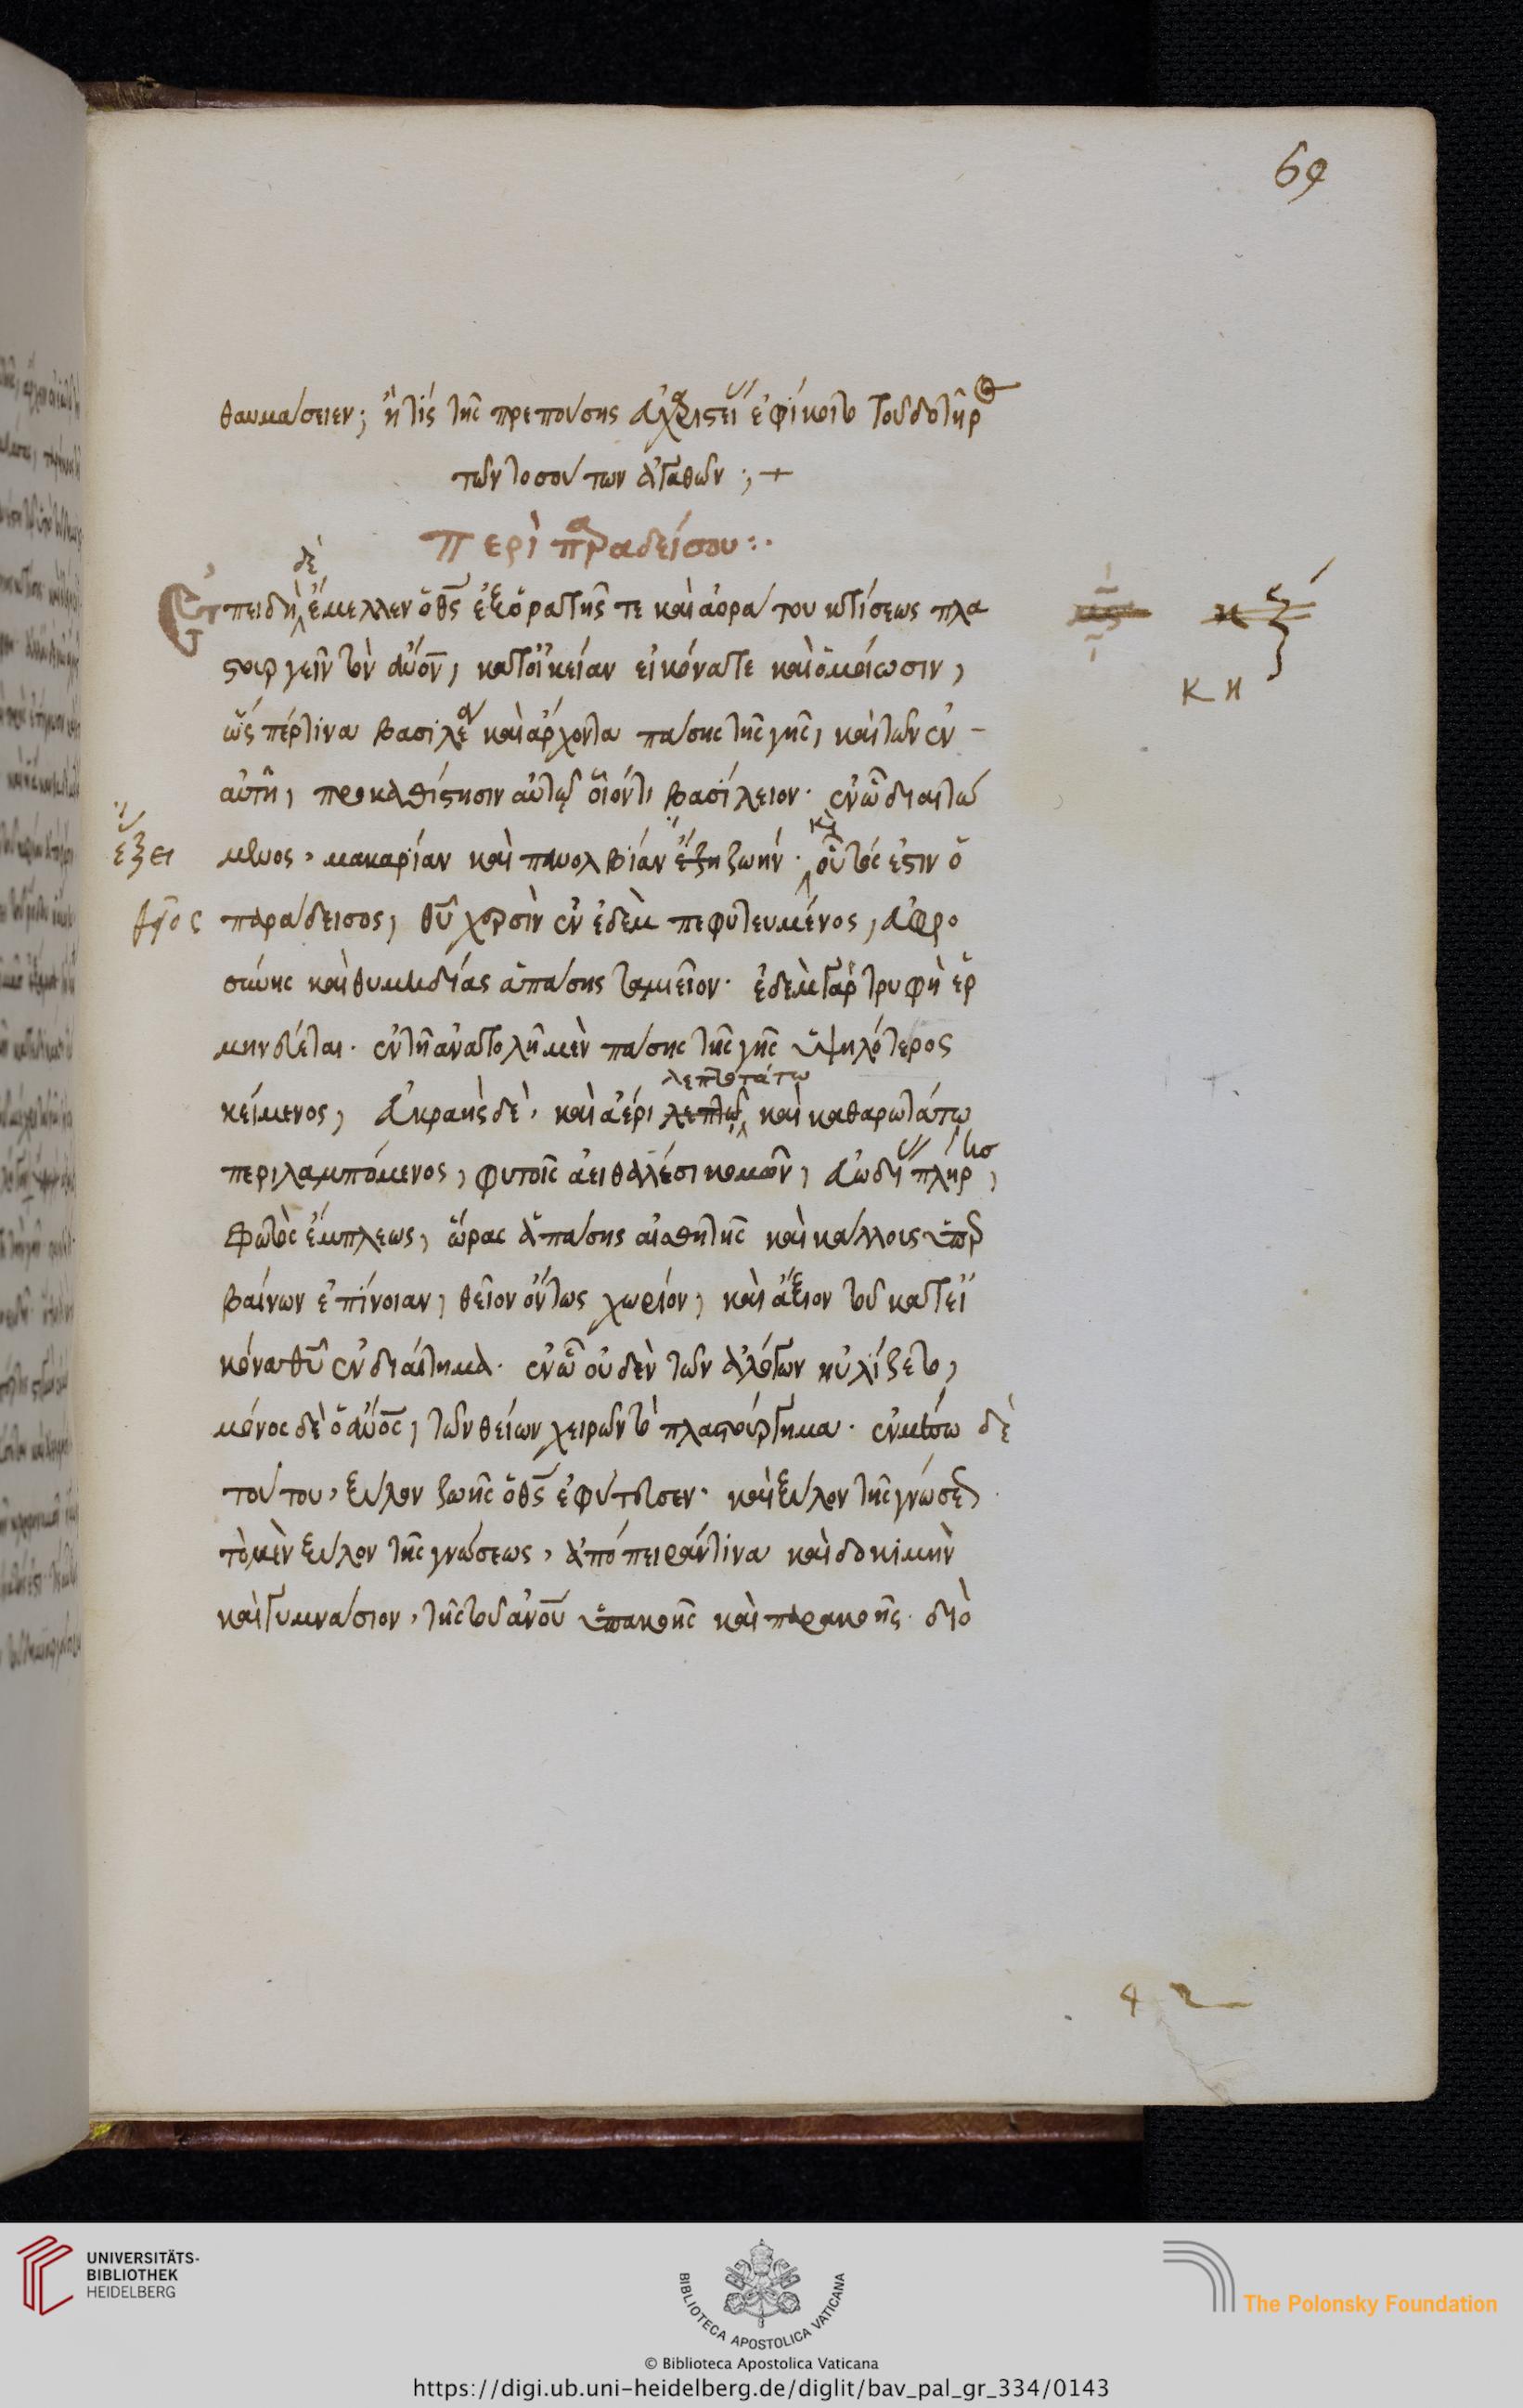 69
θαυμάσειεν; ἢ τίς τῆς πρεπούσης εὐχαριστείας ἐφίκοιτο τοῦ δοτῆρος
τῶν τοσούτων ἀγαθῶν ;+
Περὶ παραδείσου :·
δὲ
Ἐπειδὴ ἔμελλεν ὁ θς ἐξ ὁρατῆς τε καὶ ἀοράτου κτίσεως πλα
στουργεῖν τὸν ανον, κατ' οἰκείαν εἰκόνα τε καὶ ὁμοίωσιν,
κη
ὥσπέρ τινα βασιλέα καὶ ἄρχοντα πάσης τῆς γῆς, καὶ τῶν ἐν
αὐτῇ, προκαθίστησιν αὐτῷ οἱονεί τι βασίλειον· ἐν ᾧ διαιτώ
ἕξει
μενος, μακαρίαν καὶ πανολβίαν ἕξη ζωήν· κὶ οὗτός ἐστιν ὁ
θεῖος
παράδεισος, θῦ χερσὶν ἐν ἐδὲμ πεφυτευμένος, εὐφρο
σύνης καὶ θυμηδίας ἁπάσης ταμιεῖον· ἐδὲμ γὰρ τρυφὴ ἑρ
μηνεύεται· ἐν τῇ ἀνατολῇ μὲν πάσης τῆς γῆς ὑψηλότερος
λεπτοτάτω
κείμενος, εὐκραὴς δὲ, καὶ ἀέρι λεπτῷ καὶ καθαρωτάτω
περιλαμπόμενος, φυτοῖς ἀειθαλέσι κομῶν, εὐωδίας πλήρης,
φωτὸς ἔμπλεως, ὥρας ἁπάσης αἰσθητῆς καὶ κάλλους ὑπερ
βαίνων ἐπίνοιαν, θεῖον ὄντως χωρίον, καὶ ἄξιον τοῦ κατ' εἰ
κόνα θῦ ἐνδιαίτημα· ἐν ᾧ οὐδὲν τῶν ἀλόγων ηὐλίζετο,
μόνος δὲ ὁ ανος, τῶν θείων χειρῶν τὸ πλαστούργημα· ἐν μέσω δὲ
τούτου, ξύλον ζωῆς ὁ θς ἐφύτευσεν· καὶ ξύλον τῆς γνώσεως·
τὸ μὲν ξύλον τῆς γνώσεως, ἀπόπειράν τινα καὶ δοκιμὴν
καὶ γυμνάσιον, τῆς τοῦ ανου ὑπακοῆς καὶ παρακοῆς· διὸ
42
UNIVERSITÄTS-
BIBLIOTHEK
HEIDELBERG
BIBLIOTECA APOSTOLICA VATICANA
The Polonsky Foundation
© Biblioteca Apostolica Vaticana
https://digi.ub.uni-heidelberg.de/diglit/bav_pal_gr_334/0143